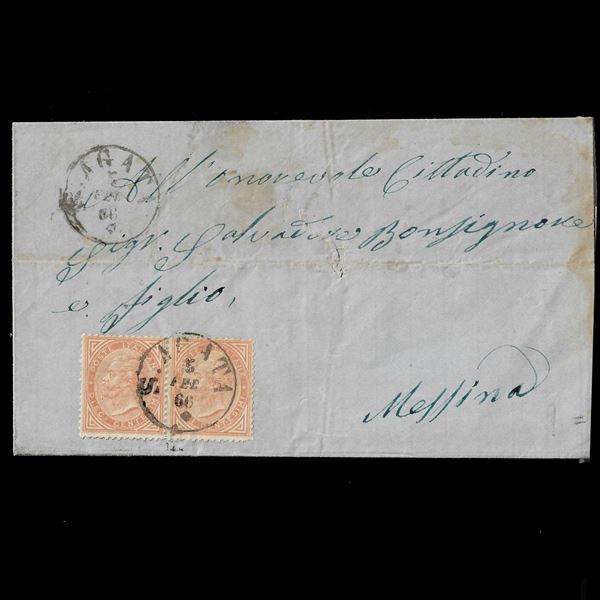 AGAT
5
FEB
66
All'onorevole Cittadino
Sigr. Salvadore Bonsignore
e figlio,
Messina
POSTE ITAL
DIECI CENT
S. AGATA
5
FEB
66